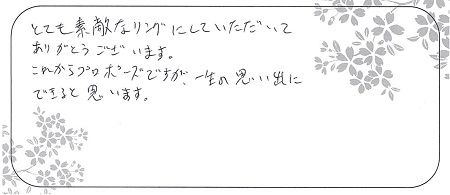 とても素敵なリングにしていただいて
ありがとうございます。
これからプロポーズですが、一生の思い出に
できると思います。